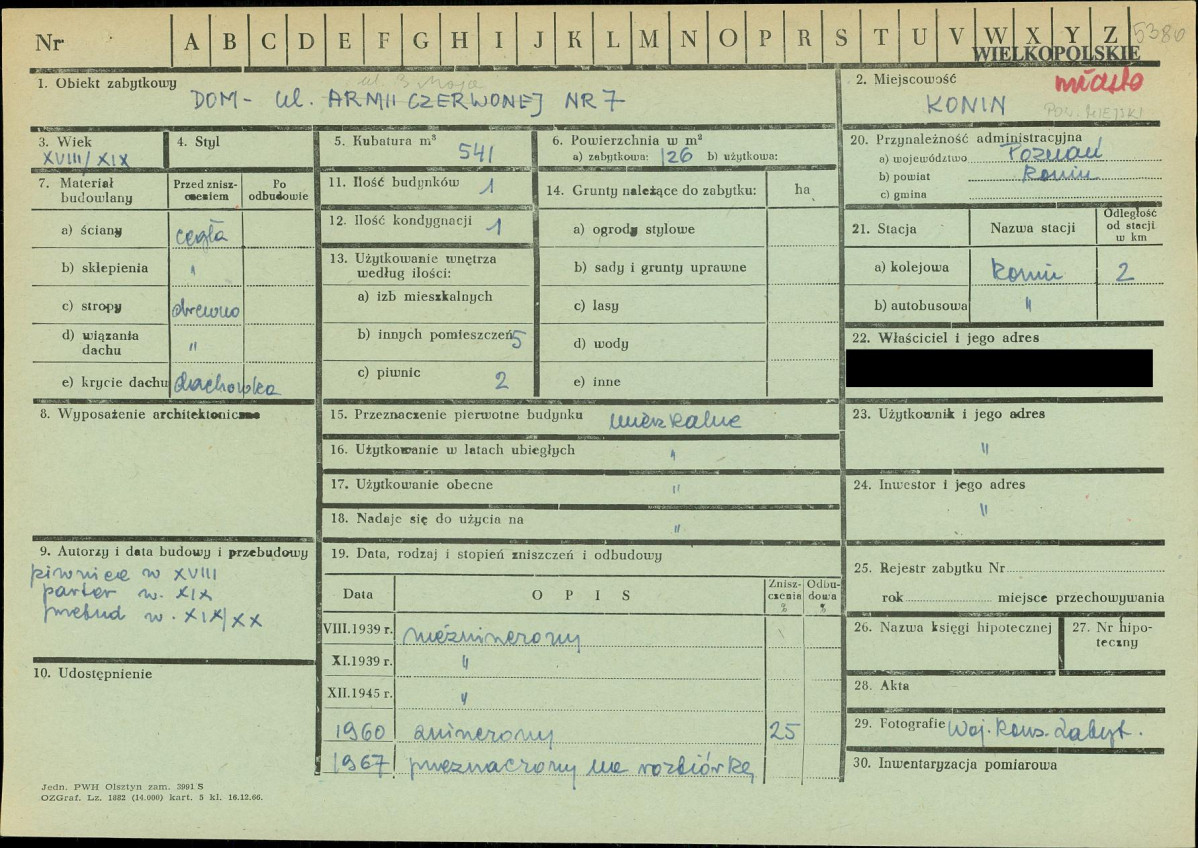 Nr A B C D E F G H I J K L M N O P R S T U V W X Y Z 5380
WIELKOPOLSKIE
1. Obiekt zabytkowy
ul. 3 Maja
DOM - ul. ARMII CZERWONEJ NR 7
2. Miejscowość
miasto
KONIN
3. Wiek
XVIII/XIX
4. Styl
5. Kubatura m³
541
6. Powierzchnia w m²
a) zabytkowa: 126 b) użytkowa:
20. Przynależność administracyjna
a) województwo Poznań
b) powiat Konin
c) gmina
7. Materiał budowlany
Przed zniszczeniem
Po odbudowie
a) ściany cegła
b) sklepienia "
c) stropy drewno
d) wiązania dachu "
e) krycie dachu dachówka
11. Ilość budynków 1
12. Ilość kondygnacji 1
13. Użytkowanie wnętrza
według ilości:
a) izb mieszkalnych
b) innych pomieszczeń 5
c) piwnic 2
14. Grunty należące do zabytku: ha
a) ogrody stylowe
b) sady i grunty uprawne
c) lasy
d) wody
e) inne
21. Stacja
Nazwa stacji
Odległość
od stacji
w km
a) kolejowa Konin 2
b) autobusowa "
22. Właściciel i jego adres
8. Wyposażenie architektoniczne
15. Przeznaczenie pierwotne budynku mieszkalne
16. Użytkowanie w latach ubiegłych "
17. Użytkowanie obecne "
18. Nadaje się do użycia na "
23. Użytkownik i jego adres
"
24. Inwestor i jego adres
"
9. Autorzy i data budowy i przebudowy
piwnice w XVIII
parter w. XIX
przebud w. XIX/XX
10. Udostępnienie
19. Data, rodzaj i stopień zniszczeń i odbudowy
Data
O P I S
Zniszczenia
%
Odbudowa
%
VIII.1939 r. niezniszczony
XI.1939 r. "
XII.1945 r. "
1960 zniszczony 25
1967 przeznaczony na rozbiórkę
25. Rejestr zabytku Nr
rok miejsce przechowywania
26. Nazwa księgi hipotecznej
27. Nr hipoteczny
28. Akta
29. Fotografie Woj. Kons. Zabyt.
30. Inwentaryzacja pomiarowa
Jedn. PWH Olsztyn zam. 3991 S
OZGraf. Lz. 1882 (14.000) kart. 5 kl. 16.12.66.